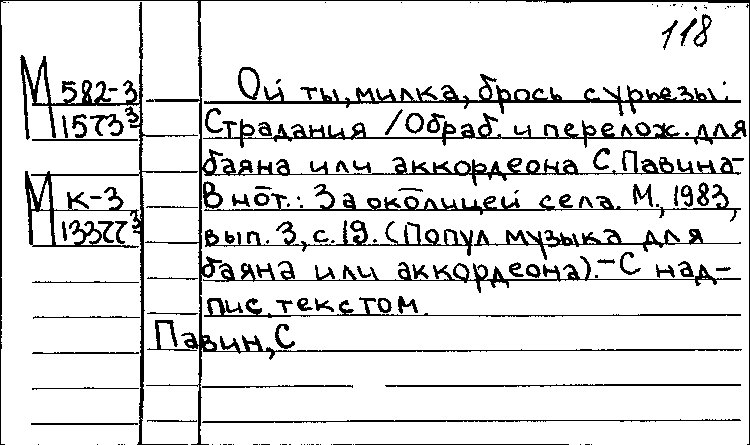 118
М 582-3 Ой ты, милка, брось сурьезы:
1573³ Страдания /Обраб. и перелож. для
баяна или аккордеона С. Павина-
М к-3 В нот.: За околицей села. М., 1983,
13377³ вып. 3, с. 19. (Попул музыка для
баяна или аккордеона).-С над-
пис. текстом.
Павин, С